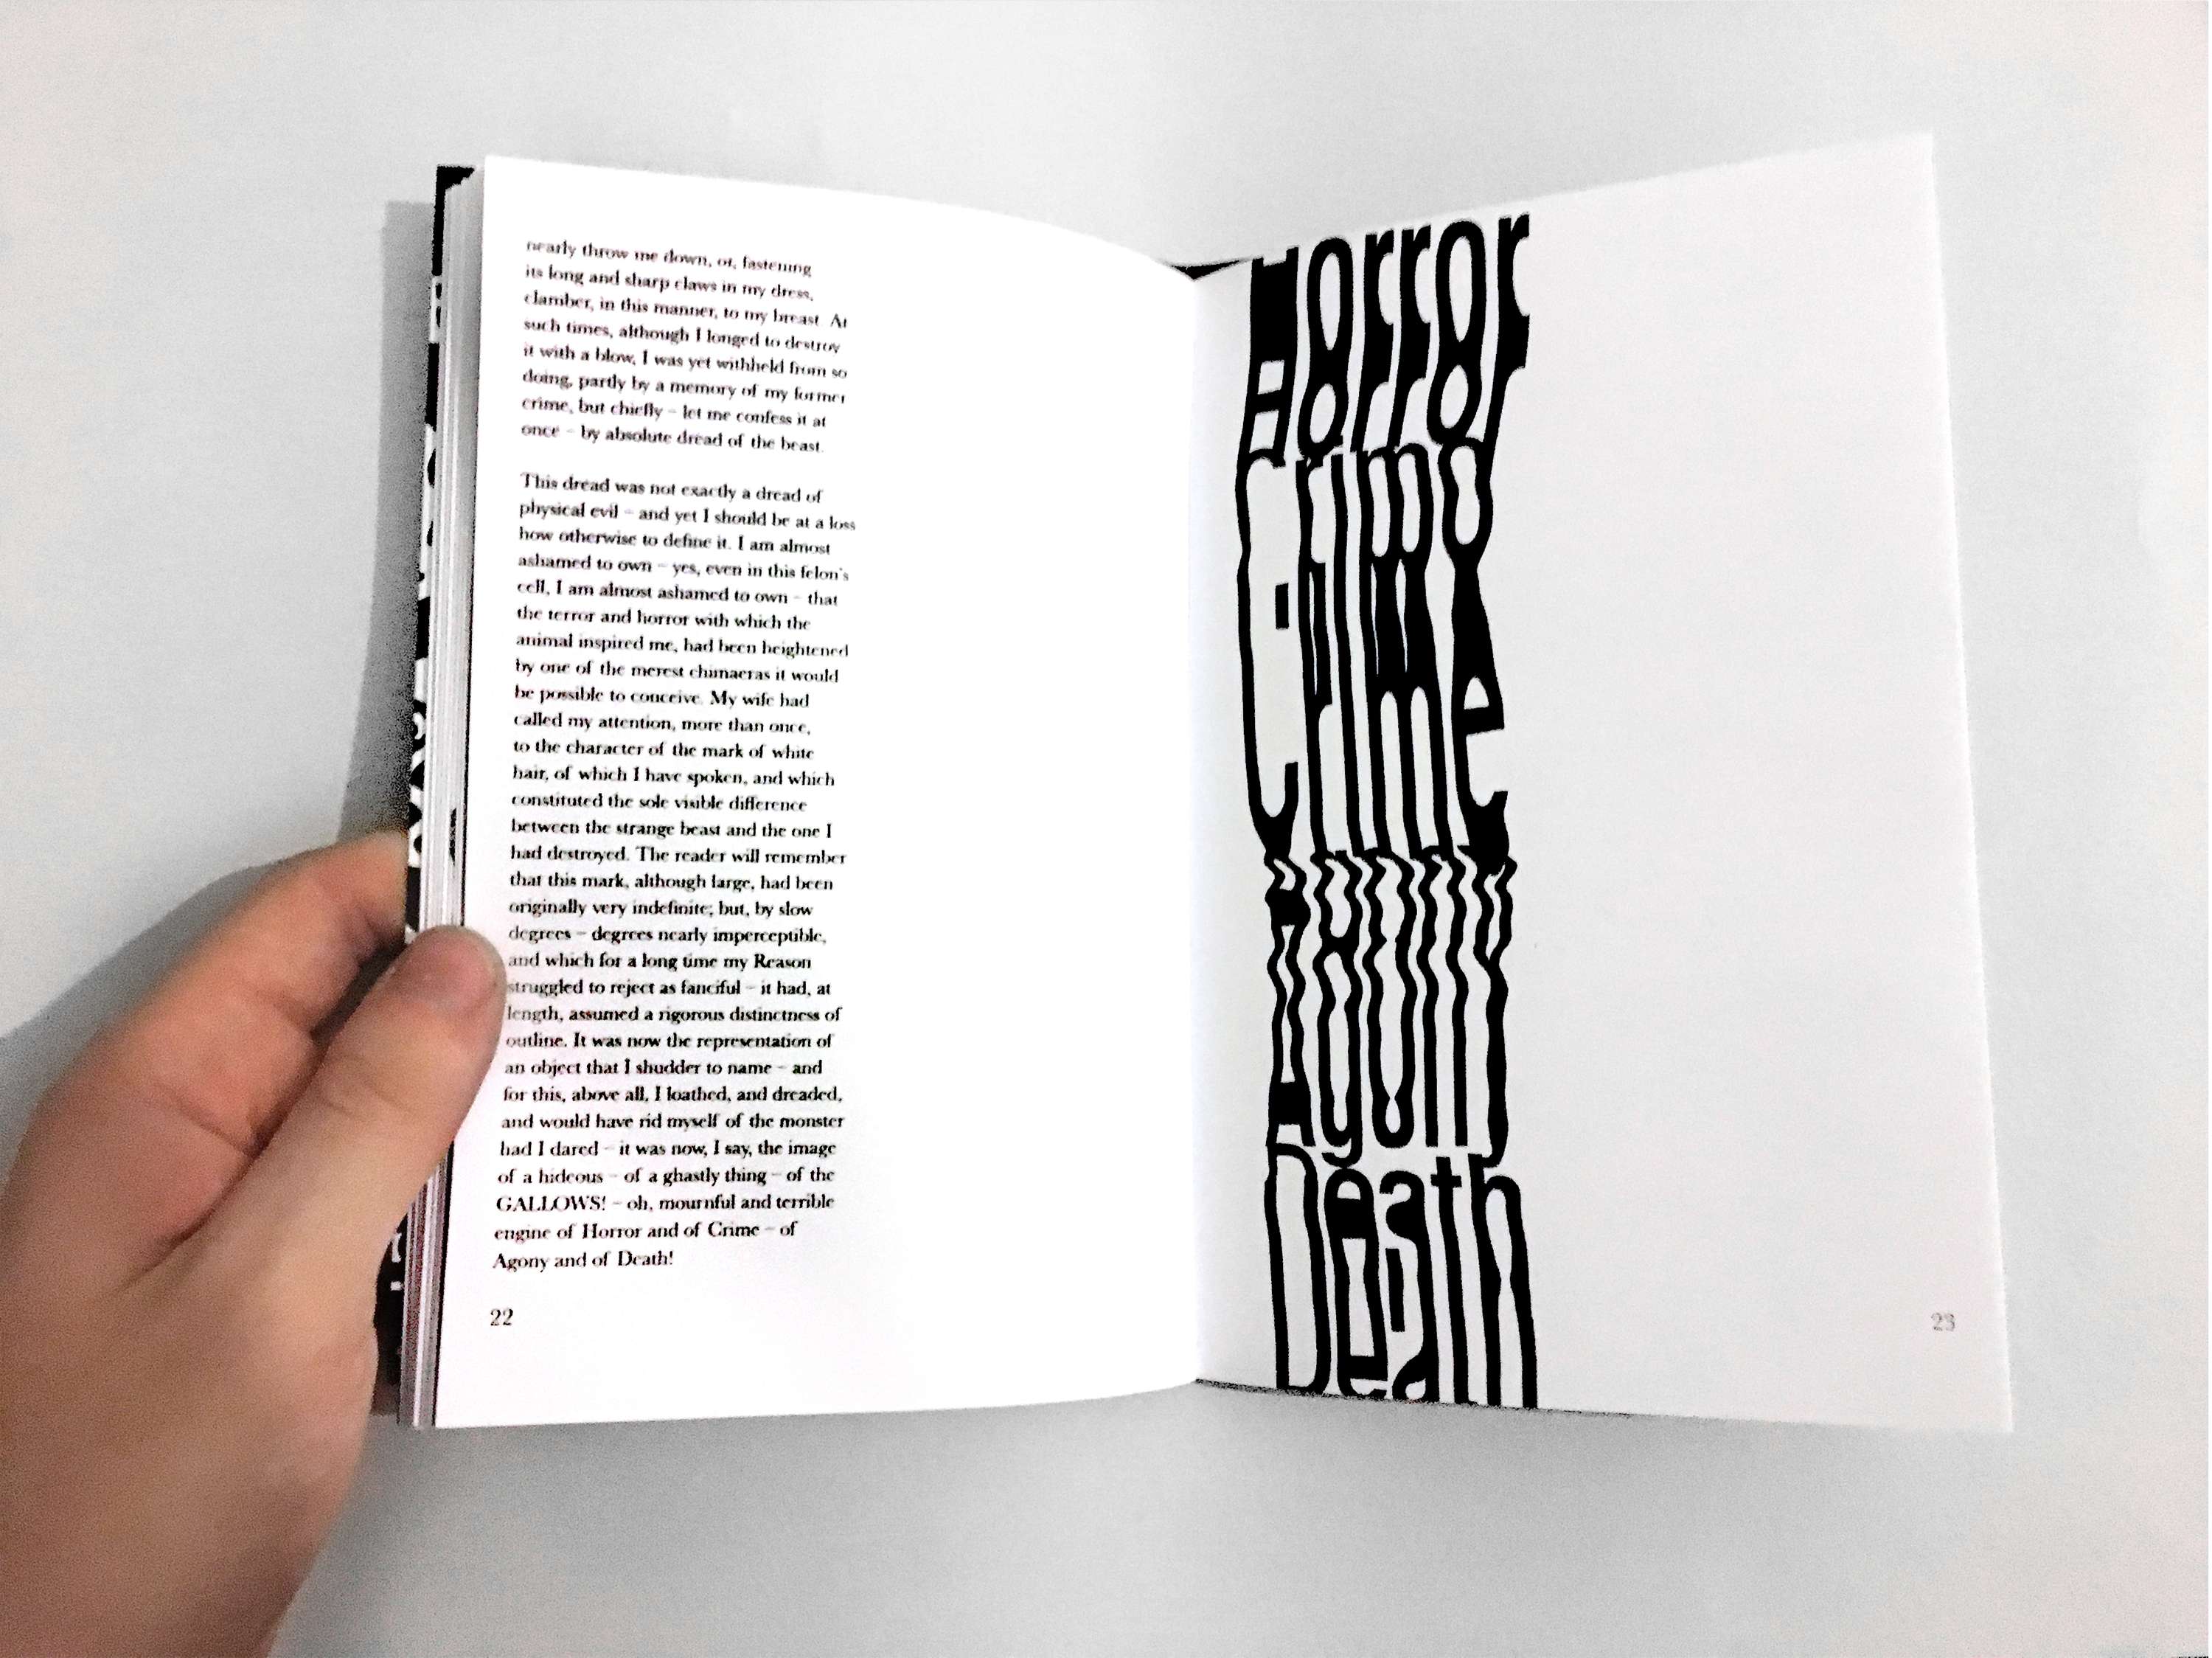 nearly throw me down, or, fastening
its long and sharp claws in my dress,
clamber, in this manner, to my breast. At
such times, although I longed to destroy
it with a blow, I was yet withheld from so
doing, partly by a memory of my former
crime, but chiefly – let me confess it at
once – by absolute dread of the beast.
This dread was not exactly a dread of
physical evil – and yet I should be at a loss
how otherwise to define it. I am almost
ashamed to own – yes, even in this felon's
cell, I am almost ashamed to own – that
the terror and horror with which the
animal inspired me, had been heightened
by one of the merest chimaeras it would
be possible to conceive. My wife had
called my attention, more than once,
to the character of the mark of white
hair, of which I have spoken, and which
constituted the sole visible difference
between the strange beast and the one I
had destroyed. The reader will remember
that this mark, although large, had been
originally very indefinite; but, by slow
degrees – degrees nearly imperceptible,
and which for a long time my Reason
struggled to reject as fanciful – it had, at
length, assumed a rigorous distinctness of
outline. It was now the representation of
an object that I shudder to name – and
for this, above all, I loathed, and dreaded,
and would have rid myself of the monster
had I dared – it was now, I say, the image
of a hideous – of a ghastly thing – of the
GALLOWS! – oh, mournful and terrible
engine of Horror and of Crime – of
Agony and of Death!
22
Horror
Crime
Agony
Death
23